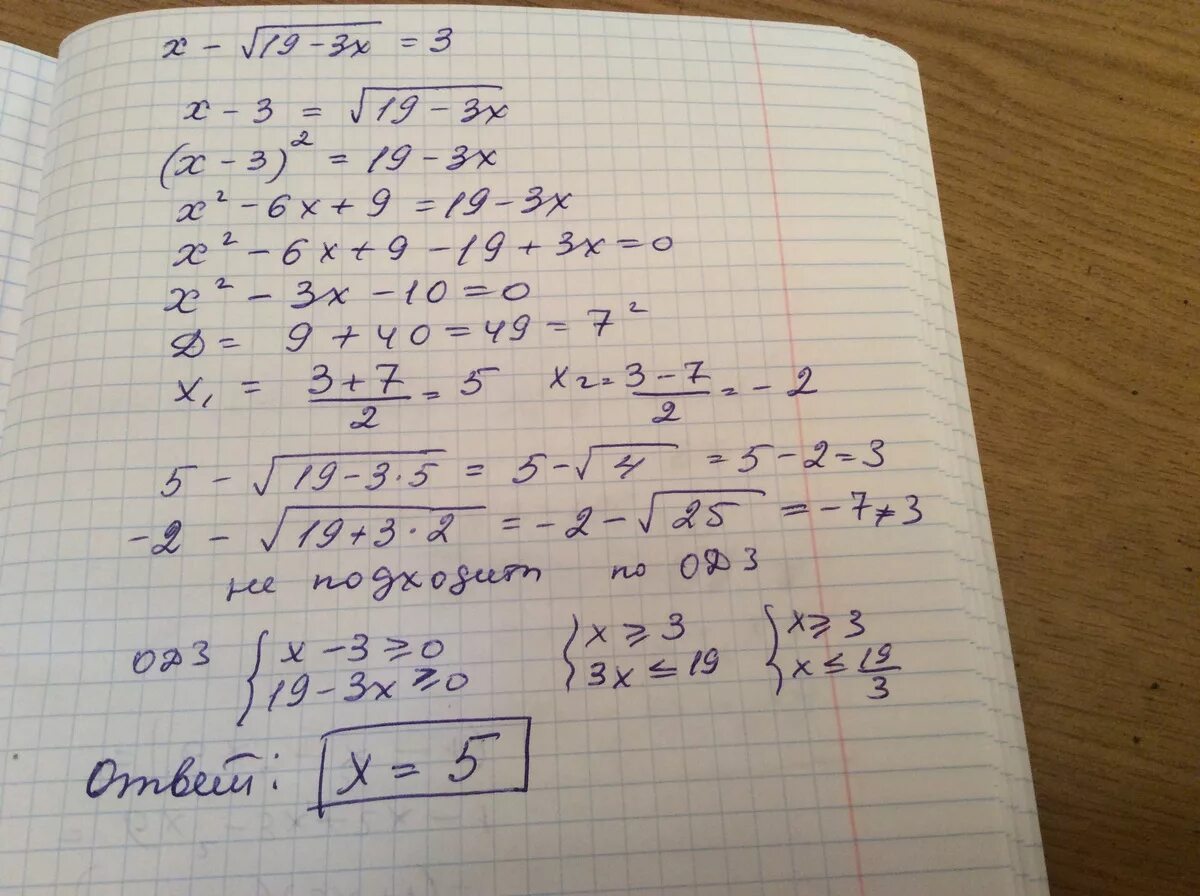 x - √(19 - 3x) = 3
x - 3 = √(19 - 3x)
(x - 3)² = 19 - 3x
x² - 6x + 9 = 19 - 3x
x² - 6x + 9 - 19 + 3x = 0
x² - 3x - 10 = 0
Д = 9 + 40 = 49 = 7²
x₁ = (3 + 7)/2 = 5 x₂ = (3 - 7)/2 = - 2
5 - √(19 - 3·5) = 5 - √4 = 5 - 2 = 3
-2 - √(19 + 3·2) = -2 - √25 = -7 ≠ 3
не подходит по ОДЗ
ОДЗ { x - 3 ≥ 0 { x ≥ 3 { x ≥ 3
19 - 3x ≥ 0 3x ≤ 19 x ≤ 19/3
Ответ: x = 5